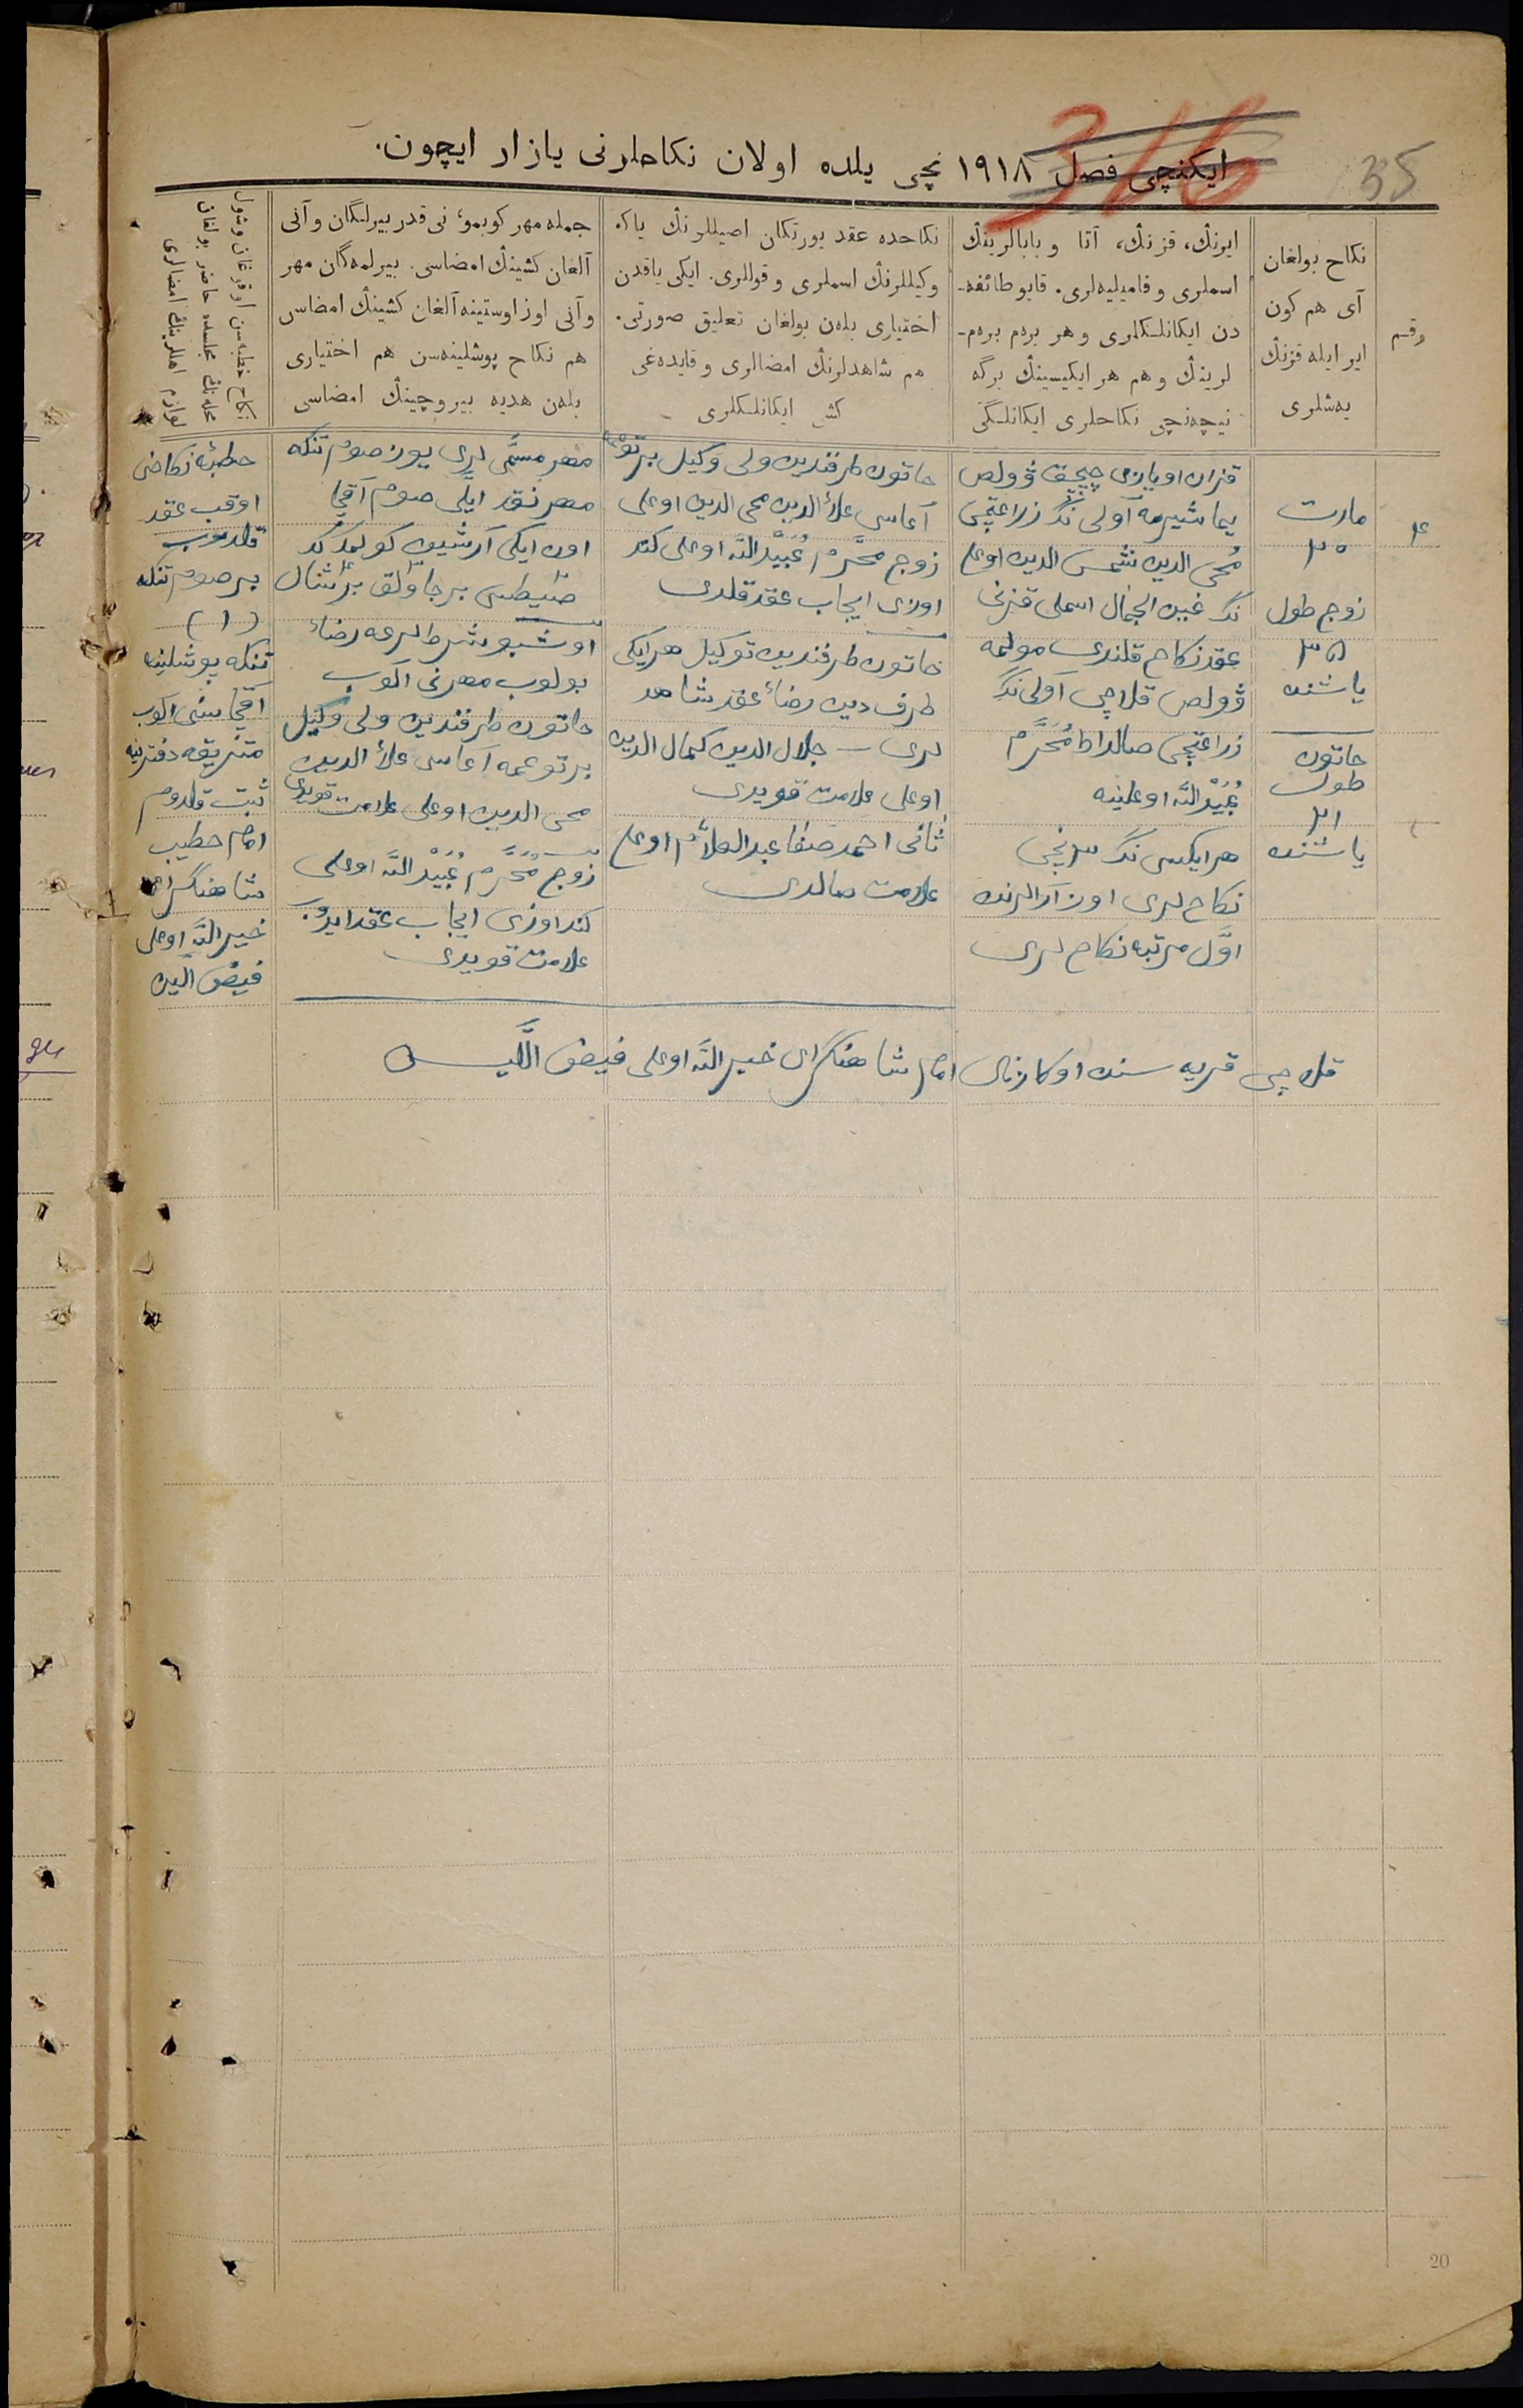 35
316
ایکنچی فصل ۱۹۱۸ نچی یلده اولان نکاحلرنی یازار ایچون.
رقم
نکاح بولغان
آی هم کون
ایر ایله قزنڭ
یەشلری
ایرنڭ، قزنڭ، آتا و بابالرینڭ
اسملری و فامیلیەلری. قایو طائفه-
دن ایکانلکلری و هر برەم برەم-
لرینڭ و هم هر ایکیسینڭ برگه
نیچەنچی نکاحلری ایکانلگی
نکاحده عقد یورتکان اصیللرنڭ یاکە
وکیللرنڭ اسملری و قوللری. ایکی یاقدن
اختیاری بلەن بولغان تعلیق صورتی.
هم شاهدلرنڭ امضالری و قایدەغی
کشی ایکانلکلری
جمله مهر کوبمو، نی قدر بیرلگان و آنی
آلغان کشینڭ امضاسی. بیرلمەگان مهر
و آنی اوز اوستینه آلغان کشینڭ امضاسی
هم نکاح پوشلینەسن هم اختیاری
بلەن هدیه بیروچینڭ امضاسی
نکاح خطبەسن اوقوغان و شول
محلەنڭ مجلسده حاضر بولغان
لوازم اهللرینڭ امضالری
۴
مارت
۲۰
زوج طول
۳۵
یاشنده
خاتون
طول
۲۱
یاشنده
قزان اویازی چیچیق ۋولص
یماشیرمه آولی نڭ زراعتچی
مُحی الدین شمس الدین اوغلی
نڭ عین الجمال اسملی قزنی
عقد نکاح قلندی مولمه
ۋولص قلاچی آولی نڭ
زراعتچی صالداط مُحَرَّم
عُبَیْدالله اوغلینه
هر ایکیسی نڭ ۳ نچی
نکاح لری اوز آرالرنده
اوّل مرتبه نکاح لری
خاتون طرفندین ولی وکیل بر توغمه
آغاسی علاء الدین محی الدین اوغلی
زوج محَرَّم عُبَیْدالله اوغلی کند
اوزی ایجاب عقد قلدی
خاتون طرفندین توکیل هر ایکی
طرف دین رضاء عقد شاهد
لری — جلال الدین کمال الدین
اوغلی علامت قویدی
ثانی احمدصفا عبدالعلام اوغلی
علامت صالدی
مهر مسمّی لری یوز صوم تنکه
مهر نقد ایلی صوم آقچا
اون ایکی آرشین کولمک لک
اوشبو شرط لرعه رضاء
بولوب مهرنی آلوب
خاتون طرفندین ولی وکیل
بر توغمه آغاسی علاء الدین
محی الدین اوغلی علامت قویدی
زوج مُحَرَّم عُبَیْدالله اوغلی
کند اوزی ایجاب عقد ایدوب
علامت قویدی
خطبهٔ نکاحنی
اوقب عقد
قلدروب
بر صوم تنکه
(۱)
تنکه پوشلینه
آقچاسنی آلوب
متریقه دفترینه
ثبت قلدوم
امام خطیب
شاهنگرای
خیرالله اوغلی
فیض اللین
قلاچی قریه سنده اوکازنای امام شاهنگرای خیرالله اوغلی فیض اللین
20